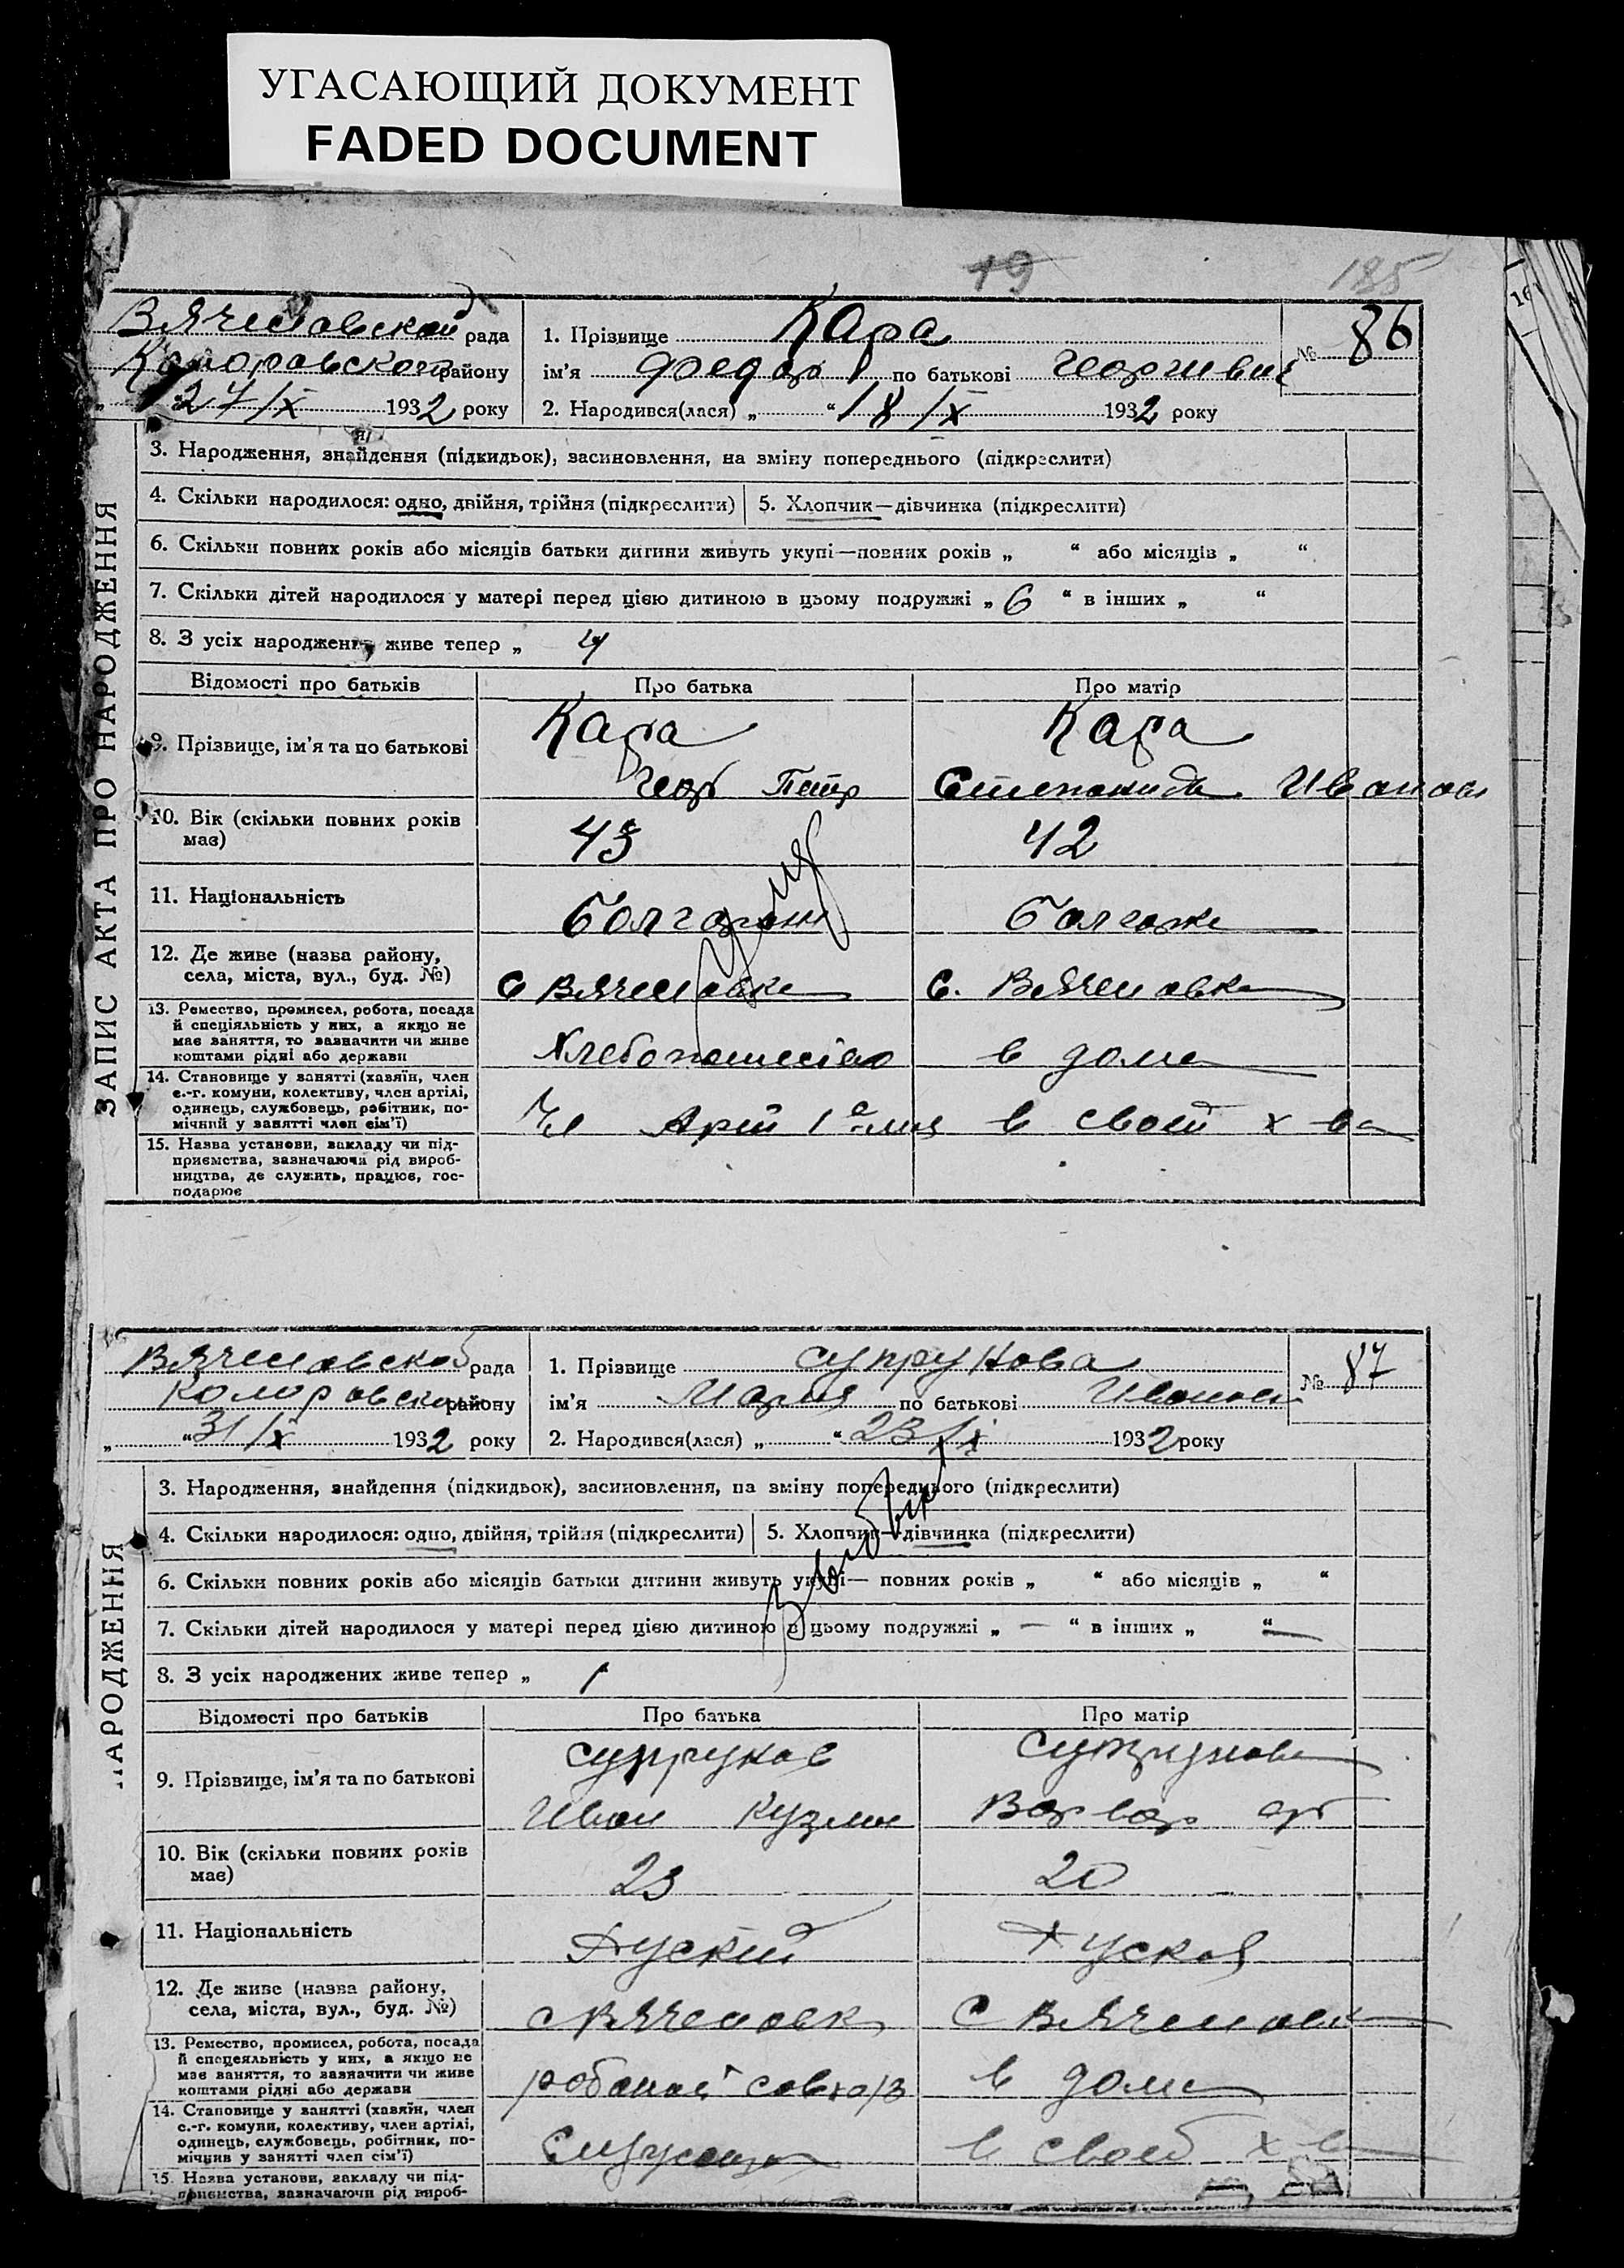 УГАСАЮЩИЙ ДОКУМЕНТ
FADED DOCUMENT
19
185
Вячесловской рада
района
„ 27/X 1932 року
1. Прізвище Кара
№ 86
ім'я Федор по батькові Георгивич
2. Народився(лася) „ “ 18/X 1932 року
ЗАПИС АКТА ПРО НАРОДЖЕННЯ
3. Народження, знайдення (підкидьок), засиновлення, на зміну попереднього (підкреслити)
4. Скільки народилося: одно, двійня, трійня (підкреслити) 5. Хлопчик—дівчинка (підкреслити)
6. Скільки повних років або місяців батьки дитини живуть укупі—повних років „ “ або місяців „ “
7. Скільки дітей народилося у матері перед цією дитиною в цьому подружжі „ 6 “ в інших „ “
8. З усіх народжених живе тепер „ 4
Відомості про батьків Про батька Про матір
9. Прізвище, ім'я та по батькові
Кара
Геор Петр
Кара
Степанида Иванов
10. Вік (скільки повних років має)
43
42
11. Національність
Болгарин
Болгарка
12. Де живе (назва району,
села, міста, вул., буд. №)
С Вячесловка
С. Вячесловка
13. Ремество, промисел, робота, посада
й спеціяльність у них, а якщо не
має заняття, то зазначити чи живе
коштами рідні або держави
в дома
14. Становище у занятті (хазяїн, член
с.-г. комуни, колективу, член артілі,
одинець, службовець, робітник, по-
мічний у занятті член сім'ї)
Чл Арт 1е мая
в своей х-ва
15. Назва установи, закладу чи під-
приємства, зазначаючи рід вироб-
ництва, де служить, працює, гос-
подарює
Вячесловской рада
района
„ “ 31/X 1932 року
1. Прізвище Супрунова
№ 87
ім'я Мария по батькові Иванов
2. Народився(лася) „ “ 23/X 1932 року
НАРОДЖЕННЯ
3. Народження, знайдення (підкидьок), засиновлення, на зміну попереднього (підкреслити)
4. Скільки народилося: одно, двійня, трійня (підкреслити) 5. Хлопчик—дівчинка (підкреслити)
6. Скільки повних років або місяців батьки дитини живуть укупі— повних років „ “ або місяців „ “
7. Скільки дітей народилося у матері перед цією дитиною в цьому подружжі „ — “ в інших „ “ —
8. З усіх народжених живе тепер „ 1
Відомості про батьків Про батька Про матір
9. Прізвище, ім'я та по батькові
Супрунов
Иван Кузми
Супрунова
Варвар
10. Вік (скільки повних років
має)
23
20
11. Національність
Руский
Руская
12. Де живе (назва району,
села, міста, вул., буд. №)
с Вячесловк
С Вячесловк
13. Ремество, промисел, робота, посада
й спецеяльність у них, а якщо не
має заняття, то зазначити чи живе
коштами рідні або держави
робочий совхоз
в дома
14. Становище у занятті (хазяїн, член
с.-г. комуни, колективу, член артілі,
одинець, службовець, робітник, по-
мічний у занятті член сім'ї)
в своей х-ва
15. Назва установи, закладу чи під-
приємства, зазначаючи рід вироб-